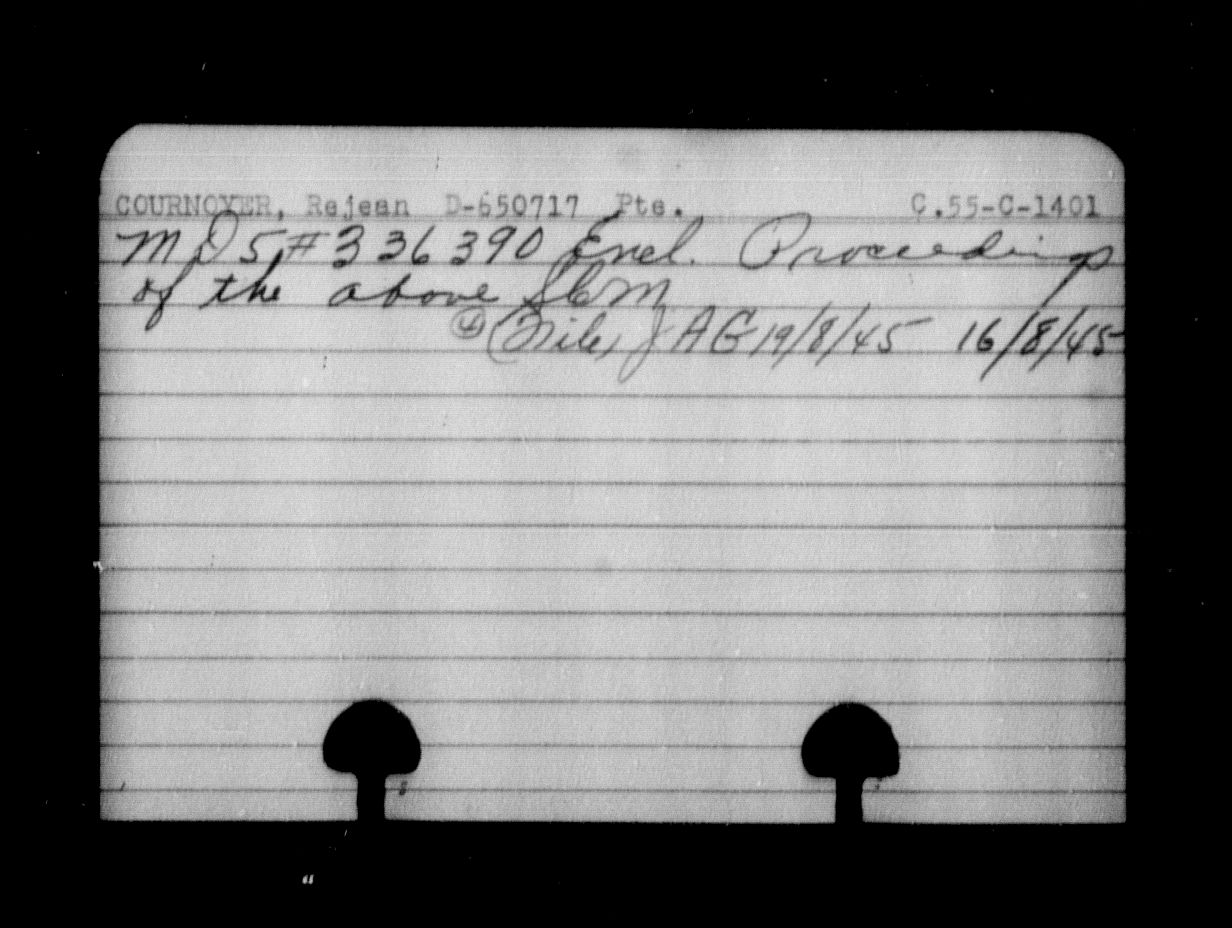 COURNOYER, Rejean D-650717 Pte. C.55-C-1401
M D 5 # 336390 Encl. Proceedings
of the above SCM
④ (File) JAG 19/8/45 16/8/45